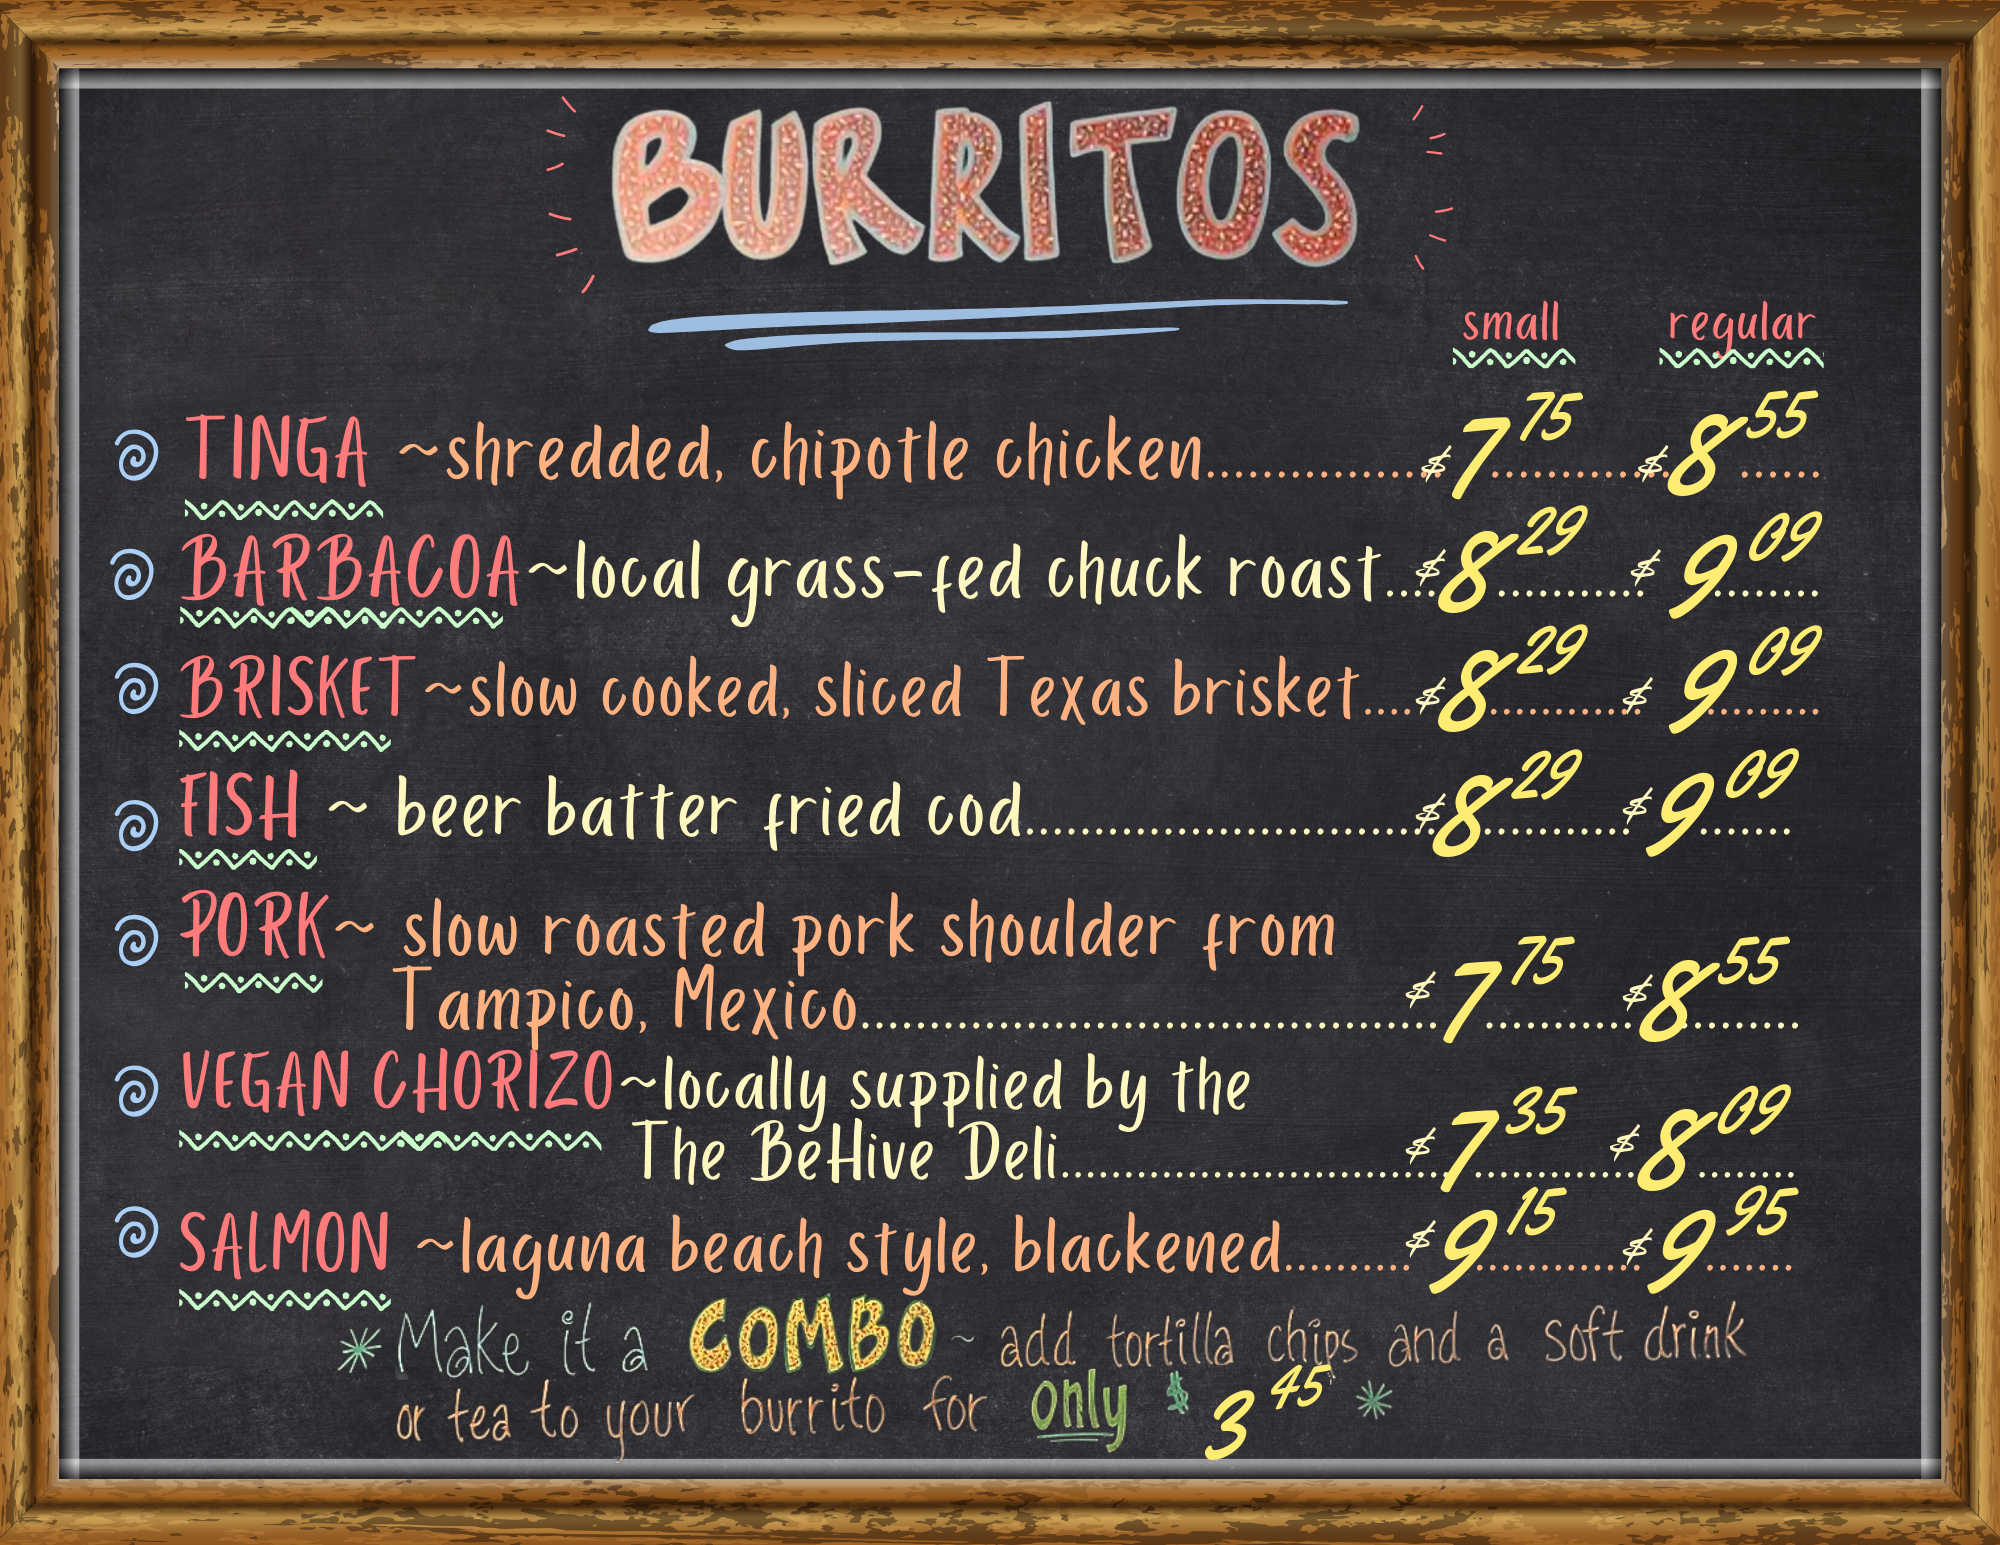 BURRITOS
small regular
TINGA ~shredded, chipotle chicken..................$7 75............$8 55......
BARBACOA~local grass-fed chuck roast....$8 29............$9 09.........
BRISKET~slow cooked, sliced Texas brisket....$8 29............$9 09.........
FISH ~ beer batter fried cod..................................$8 29............$9 09.......
PORK~ slow roasted pork shoulder from
Tampico, Mexico.................................................$7 75............$8 55.........
VEGAN CHORIZO~locally supplied by the
The BeHive Deli.................................$7 35............$8 09........
SALMON ~laguna beach style, blackened..........$9 15............$9 95.......
*Make it a COMBO ~ add tortilla chips and a soft drink
or tea to your burrito for only $3 45 *